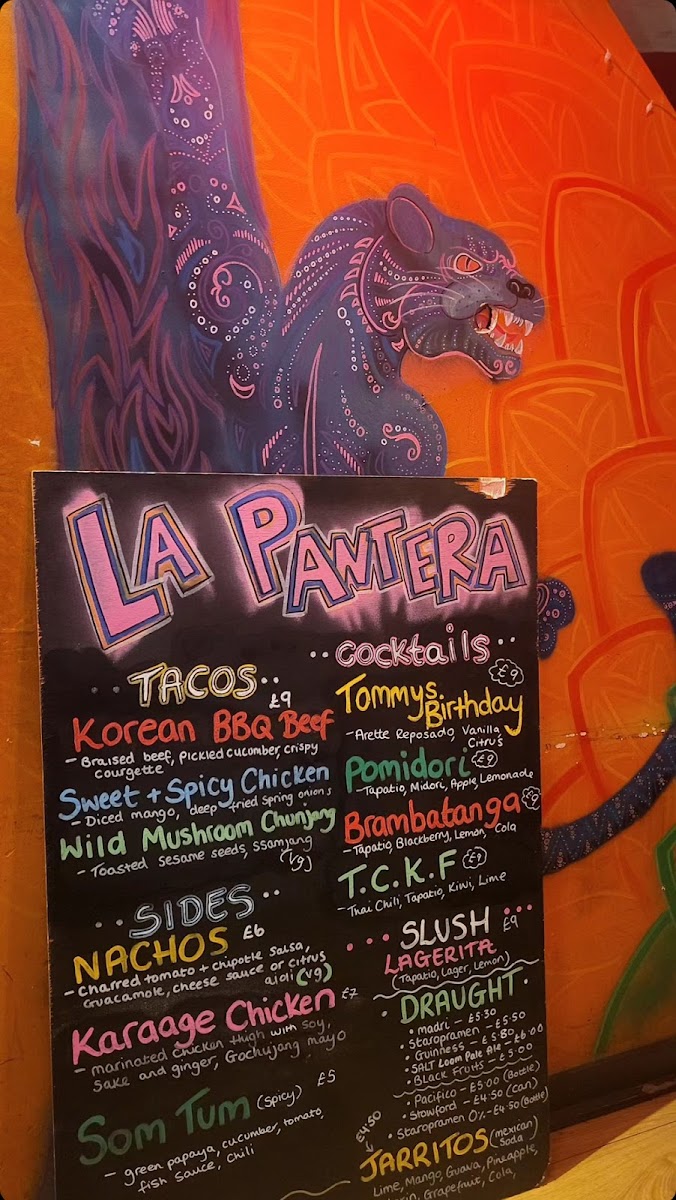 LA PANTERA
TACOS
£9
Korean BBQ Beef
- Braised beef, Pickled cucumber, crispy
courgette
Sweet + Spicy Chicken
- Diced mango, deep fried spring onions
Wild Mushroom Chunjang
- Toasted sesame seeds, ssamjang
(vg)
SIDES
NACHOS £6
- Charred tomato + chipotle salsa,
Guacamole, cheese sauce or citrus
aioli (vg)
Karaage Chicken £7
- marinated chicken thigh with soy,
sake and ginger, Gochujang mayo
Som Tum (spicy) £5
- green papaya, cucumber, tomato,
fish sauce, chili
Cocktails
Tommys £9
Birthday
- Arette Reposado, Vanilla,
Citrus
Pomidori £9
- Tapatio, Midori, Apple, Lemonade
Brambatanga £9
- Tapatio, Blackberry, Lemon, Cola
T.C.K.F £9
- Thai Chili, Tapatio, Kiwi, Lime
SLUSH £9
LAGERITA
(Tapatio, Lager, Lemon)
DRAUGHT
• madri - £5.30
• Staropramen - £5.50
• Guinness - £5.80
• SALT Loom Pale Ale - £6.00
• Black Fruits - £5.00
• Pacifico - £5.00 (Bottle)
• Stowford - £4.50 (can)
• Staropramen 0% - £4.50 (Bottle)
£4.50
JARRITOS (mexican
Soda)
Lime, Mango, Guava, Pineapple,
Grapefruit, Cola,